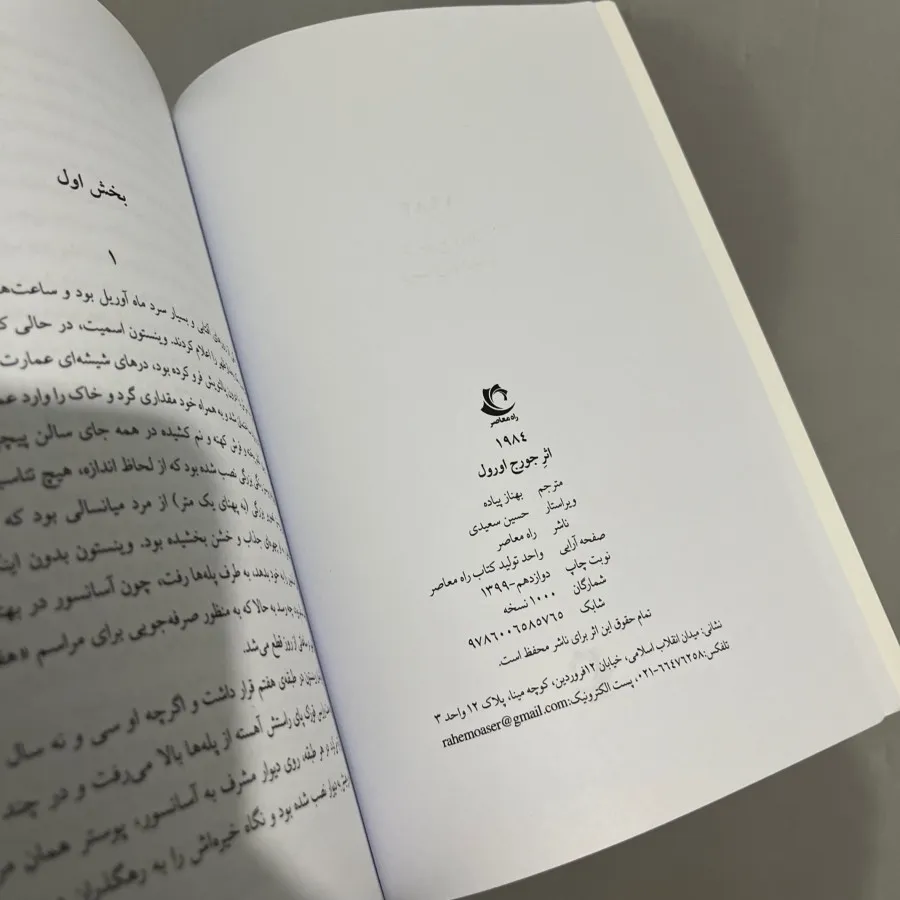 راه معاصر
۱۹۸۴
اثرِ جورج اورول
مترجم بهناز پیاده
ویراستار حسین سعیدی
ناشر راه معاصر
صفحه آرایی واحد تولید کتاب راه معاصر
نوبت چاپ دوازدهم-۱۳۹۹
شمارگان ۱۰۰۰ نسخه
شابک ۹۷۸۶۰۰۶۵۸۵۷۶۵
تمام حقوق این اثر برای ناشر محفظ است.
نشانی: میدان انقلاب اسلامی، خیابان ۱۲فروردین، کوچه مینا، پلاک ۱۲ واحد ۳
تلفکس:۶۶۴۷۶۲۵۸-۰۲۱، پست الکترونیک:rahemoaser@gmail.com
بخش اول
۱
آفتابی و بسیار سرد ماه آوریل بود و ساعت‌ه
را اعلام کردند. وینستون اسمیت، در حالی ک
فرو کرده بود، درهای شیشه‌ای عمارت
شد و به همراه خود مقداری گرد و خاک را وارد عم
و فرش کهنه و نم کشیده در همه جای سالن پیچی
بزرگی نصب شده بود که از لحاظ اندازه، هیچ تناسب
بزرگی (به پهنای یک متر) از مرد میانسالی بود که
چهره‌ای جذاب و خشن بخشیده بود. وینستون بدون اینک
به خود بدهد، به طرف پله‌ها رفت، چون آسانسور در بهت
چه رسد به حالا که به منظور صرفه‌جویی برای مراسم «هف
از روز قطع می‌شد.
در طبقه‌ی هفتم قرار داشت و اگرچه او سی و نه سال
قوزک پای راستش آهسته از پله‌ها بالا می‌رفت و در چند
در هر طبقه، روی دیوار مشرف به آسانسور، پوستر همان مر
دیوار نصب شده بود و نگاه خیره‌اش را به رهگذران